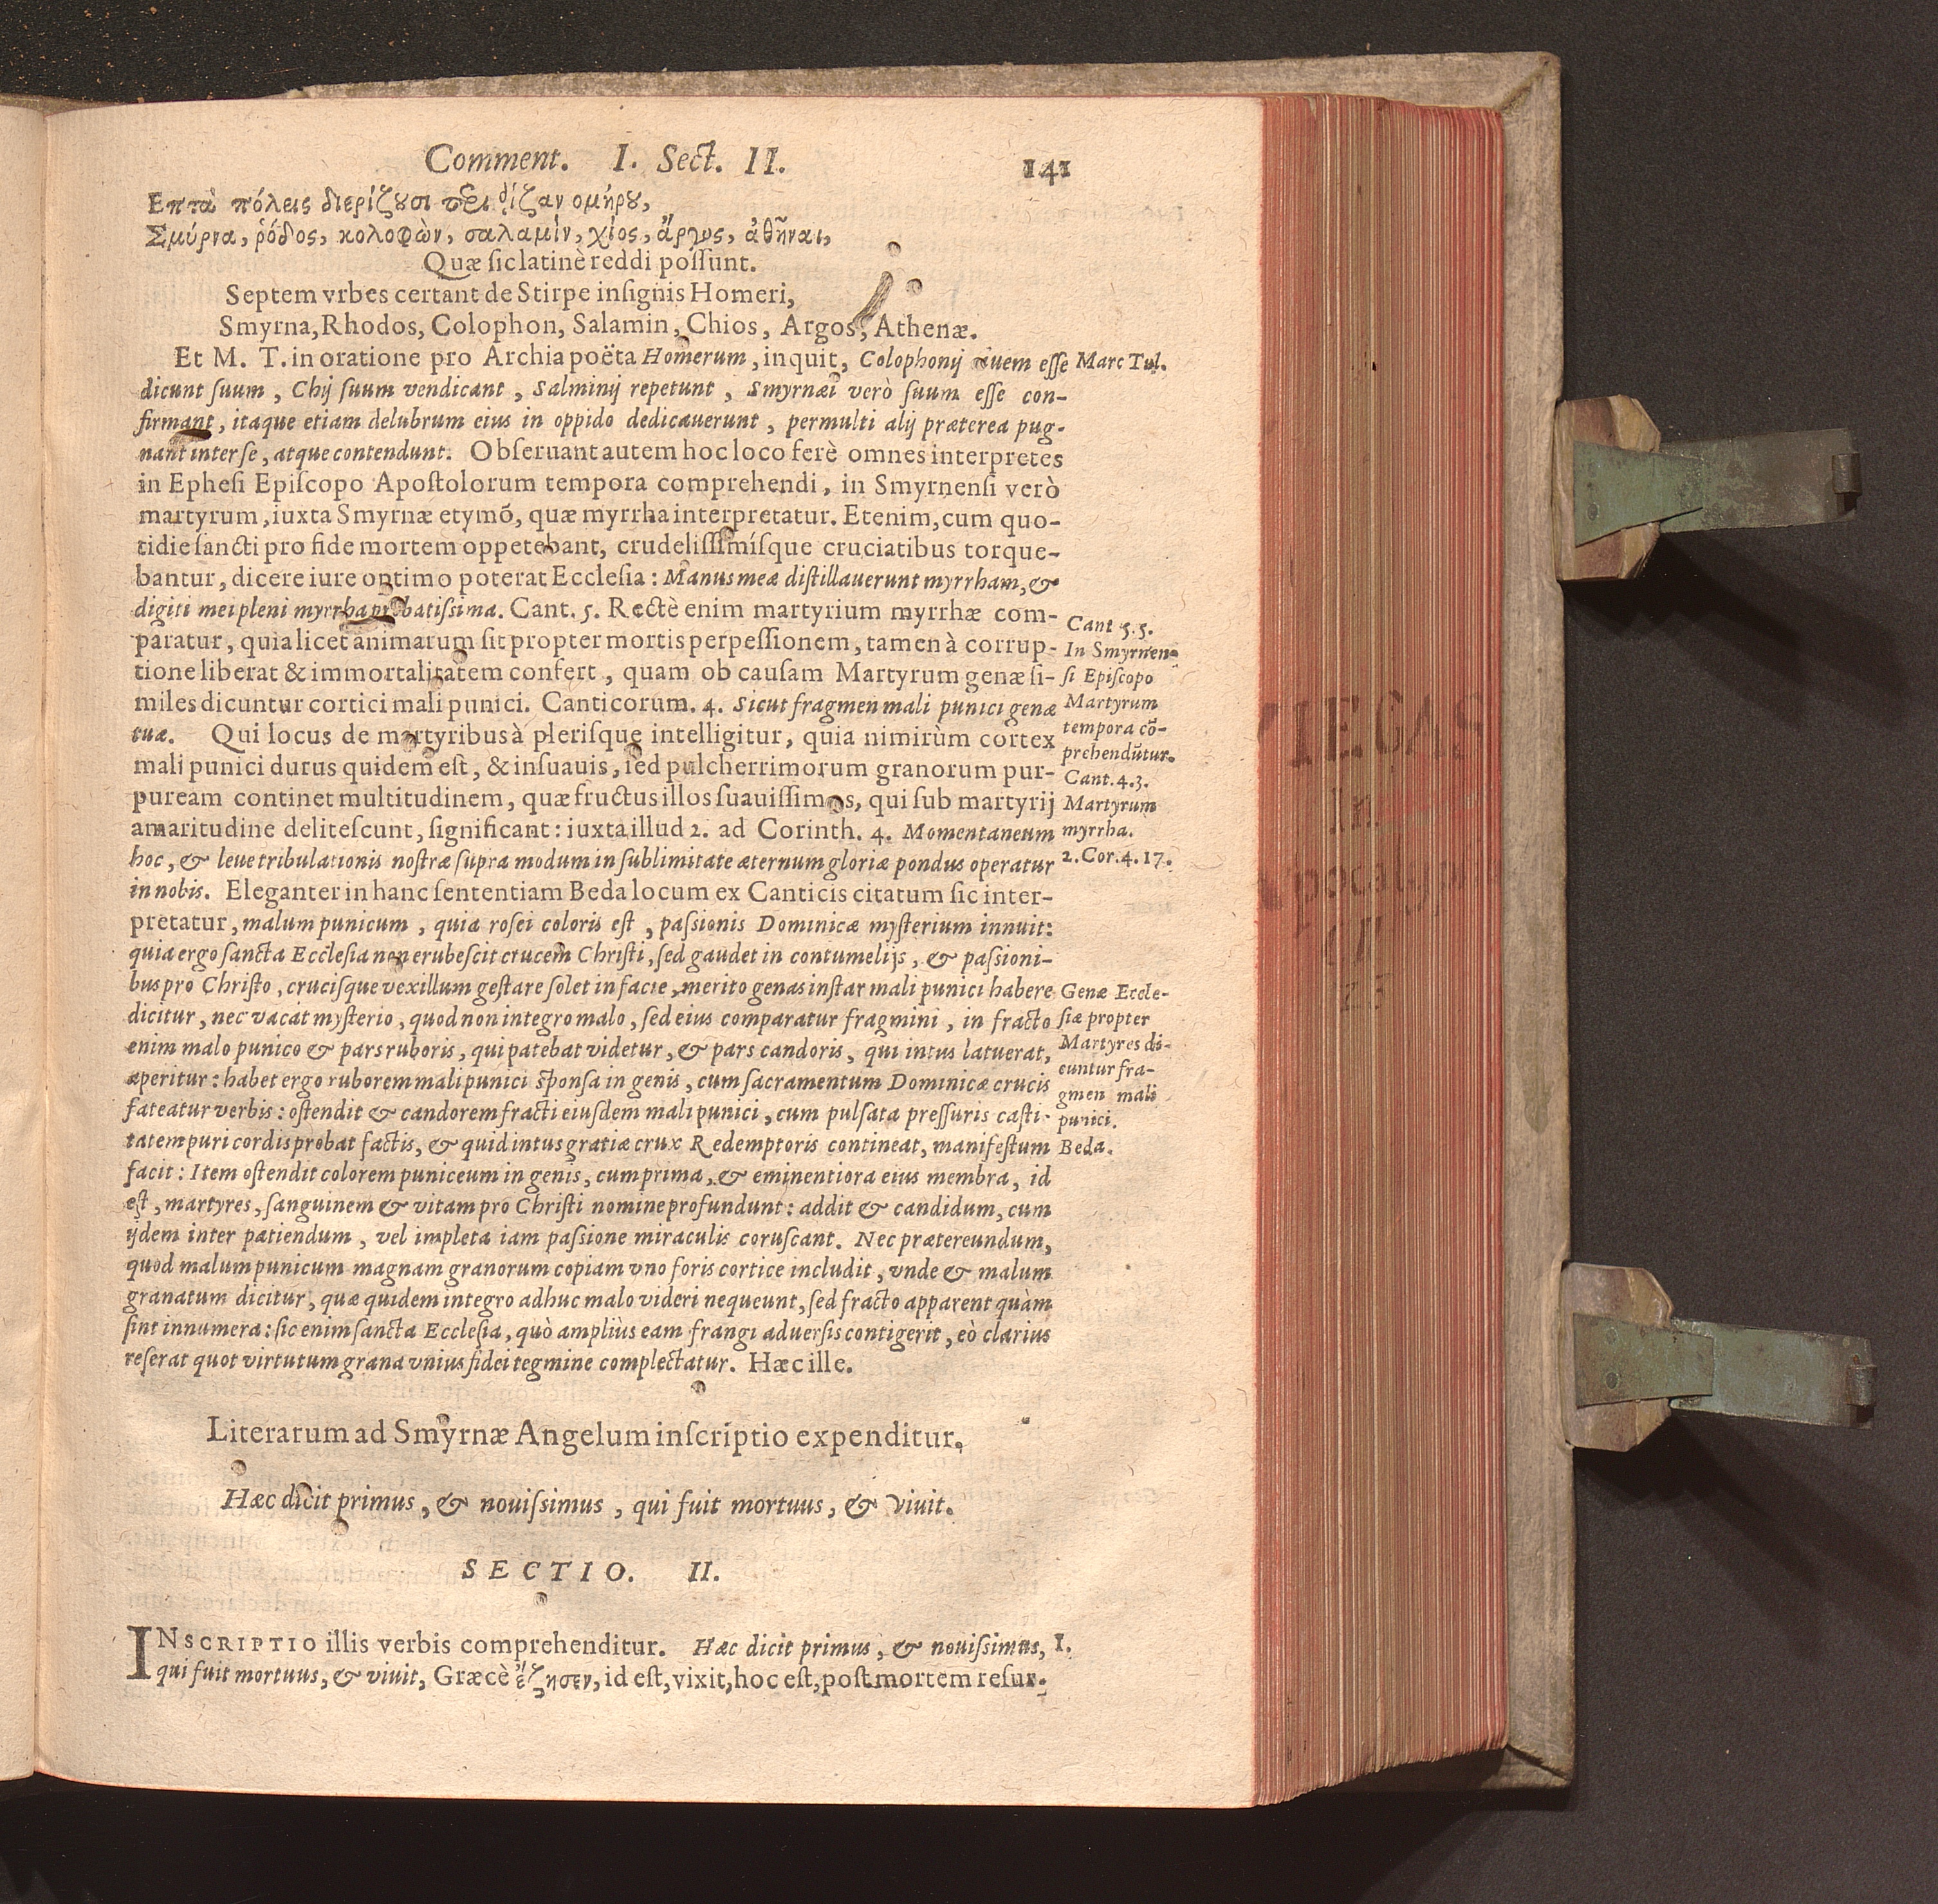 Comment. I. Sect. II. 141
Επτὰ πόλεις διερίζȣσι περι ῥίζαν ομήρȣ,
Σμύρνα, ῥόδος, κολοφὼν, σαλαμὶν, χίος, ἄργος, ἀθῆναι,
Quæ ſic latinè reddi poſſunt.
Septem vrbes certant de Stirpe inſignis Homeri,
Smyrna, Rhodos, Colophon, Salamin, Chios, Argos, Athenæ.
Et M. T. in oratione pro Archia poëta Homerum, inquit, Colophonij ciuem eſſe
Marc Tul.
dicunt ſuum, Chij ſuum vendicant, Salminij repetunt, Smyrnæi verò ſuum eſſe con-
firmant, itaque etiam delubrum eius in oppido dedicauerunt, permulti alij præterea pug-
nant inter ſe, atque contendunt. Obſeruant autem hoc loco ferè omnes interpretes
in Epheſi Epiſcopo Apoſtolorum tempora comprehendi, in Smyrnenſi verò
martyrum, iuxta Smyrnæ etymõ, quæ myrrha interpretatur. Etenim, cum quo-
tidie ſancti pro fide mortem oppetebant, crudeliſſimíſque cruciatibus torque-
bantur, dicere iure optimo poterat Eccleſia: Manus meæ diſtillauerunt myrrham, &
digiti mei pleni myrrha probatiſsima. Cant. 5. Rectè enim martyrium myrrhæ com-
Cant 5.5.
paratur, quia licet animarum ſit propter mortis perpeſſionem, tamen à corrup-
In Smyrnen-
tione liberat & immortalitatem confert, quam ob cauſam Martyrum genæ ſi-
ſi Epiſcopo
miles dicuntur cortici mali punici. Canticorum. 4. Sicut fragmen mali punici genæ
Martyrum
tuæ. Qui locus de martyribus à pleriſque intelligitur, quia nimirùm cortex
tempora cõ-
prehendũtur.
mali punici durus quidem eſt, & inſuauis, ſed pulcherrimorum granorum pur-
Cant. 4.3.
puream continet multitudinem, quæ fructus illos ſuauiſſimos, qui ſub martyrij
Martyrum
amaritudine deliteſcunt, ſignificant: iuxta illud 2. ad Corinth. 4. Momentaneum
myrrha.
hoc, & leue tribulationis noſtræ ſupra modum in ſublimitate æternum gloriæ pondus operatur
2. Cor. 4. 17.
in nobis. Eleganter in hanc ſententiam Beda locum ex Canticis citatum ſic inter-
pretatur, malum punicum, quia roſei coloris eſt, paſsionis Dominicæ myſterium innuit:
quia ergo ſancta Eccleſia non erubeſcit crucem Chriſti, ſed gaudet in contumelijs, & paſsioni-
bus pro Chriſto, cruciſque vexillum geſtare ſolet in facie, merito genas inſtar mali punici habere
Genæ Eccle-
dicitur, nec vacat myſterio, quod non integro malo, ſed eius comparatur fragmini, in fracto
ſiæ propter
enim malo punico & pars ruboris, qui patebat videtur, & pars candoris, qui intus latuerat,
Martyres di-
aperitur: habet ergo ruborem mali punici ſponſa in genis, cum ſacramentum Dominicæ crucis
cuntur fra-
gmen mali
fateatur verbis: oſtendit & candorem fracti eiuſdem mali punici, cum pulſata preſſuris caſti-
punici.
tatem puri cordis probat factis, & quid intus gratiæ crux Redemptoris contineat, manifeſtum
Beda.
facit: Item oſtendit colorem puniceum in genis, cum prima, & eminentiora eius membra, id
eſt, martyres, ſanguinem & vitam pro Chriſti nomine profundunt: addit & candidum, cum
ijdem inter patiendum, vel impleta iam paſsione miraculis coruſcant. Nec prætereundum,
quod malum punicum magnam granorum copiam vno foris cortice includit, vnde & malum
granatum dicitur, quæ quidem integro adhuc malo videri nequeunt, ſed fracto apparent quàm
ſint innumera: ſic enim ſancta Eccleſia, quò ampliùs eam frangi aduerſis contigerit, eò clarius
reſerat quot virtutum grana vnius fidei tegmine complectatur. Hæc ille.
Literarum ad Smyrnæ Angelum inſcriptio expenditur.
Hæc dicit primus, & nouiſsimus, qui fuit mortuus, & viuit.
SECTIO. II.
INSCRIPTIO illis verbis comprehenditur. Hæc dicit primus, & nouiſsimus,
I.
qui fuit mortuus, & viuit, Græcè ἔζησεν, id eſt, vixit, hoc eſt, poſt mortem reſur-